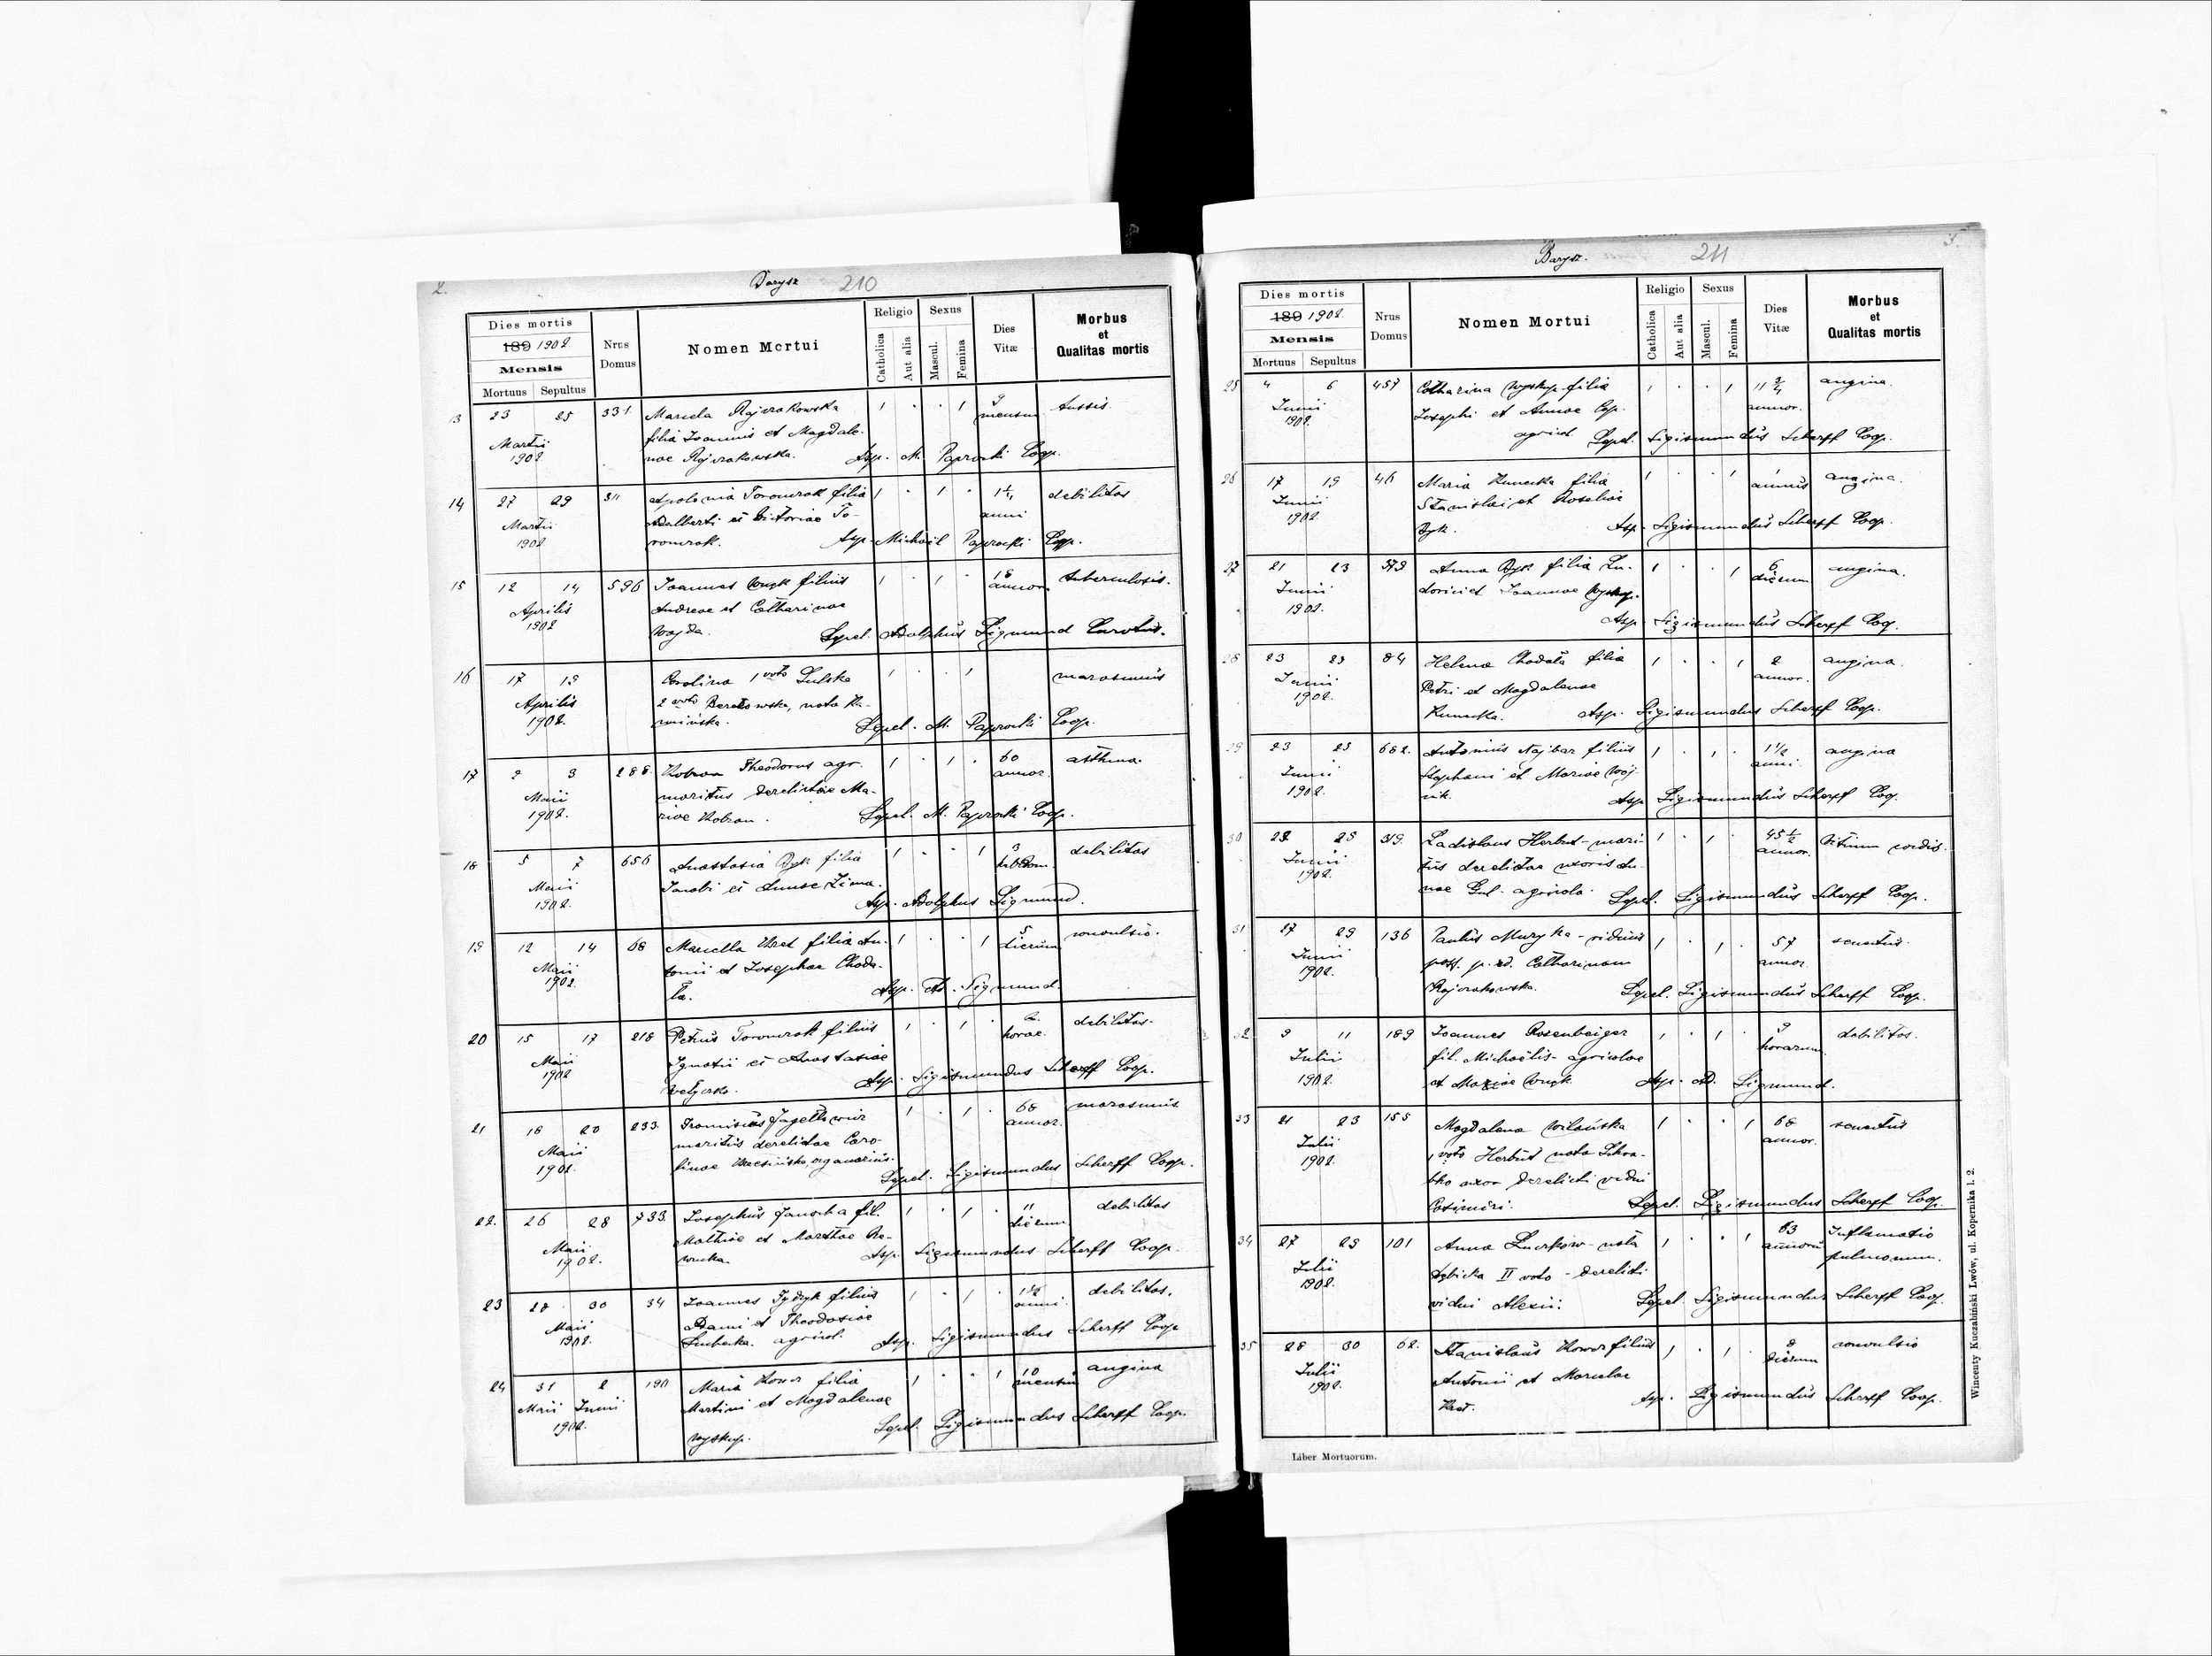 2.
Barysz 210
Dies mortis
189 1902
Mensis
Mortuus Sepultus
Nrus Domus
Nomen Mortui
Religio
Catholica Aut alia
Sexus
Mascul. Femina
Dies Vitæ
Morbus et Qualitas mortis
13 23 25 331 Mariela Rajczakowska 1 . . 1 9 tussis
Martii filia Joannis et Magdale- mensium
1902 nae Rajczakowska. Asp. M. Paprocki Coop.
14 27 29 311 Apolonia Toromczak filia 1 . 1 . 1 1/4 debilitas
Martii Adalberti et Victoriae To- anni
1902 romczak. Asp. Michaël Paprocki Coop.
15 12 14 596 Joannes filius 1 . 1 . 18 tuberculosis.
Aprilis Andreae et Catharinae annor.
1902 Wojda. Sepel. Adolphus Sigmund
16 17 19 Carolina 1 voto 1 . . 1 marasmus
Aprilis 2 voto nata Ka-
1902. mińska. Sepel. M. Paprocki Coop.
17 2 3 288 Theodorus agr. 1 . 1 . 60 asthma.
Maii maritus derelictae Ma- annor.
1902. riae Sepel. M. Paprocki Coop.
18 5 7 656 Anastasia Dyk filia 1 . . 1 3 debilitas
Maii Jacobi et Annae Zima. hebdom.
1902. Asp. Adolphus Sigmund.
19 12 14 68 Marcella Kret filia An- 1 . . 1 5 convulsio.
Maii tonii et Josephae Choda- dierum
1902. ła. Asp. Ad. Sigmund
20 15 17 218 Petrus Toromczak filius 1 . 1 . 2 debilitas.
Maii Ignatii et Anastasiae horae.
1902 Asp. Sigismundus Scherff Coop.
21 18 20 233 1 . 1 . 68 marasmus
Maii maritus derelictae Caro- annor.
1902. linae organarius. Sepel. Sigismundus Scherff Coop.
22. 26 28 733 Josephus Janocha fil. 1 . 1 . 11 debilitas
Maii Mathiae et Marthae dierum
1902. Asp. Sigismundus Scherff Coop.
23 28 30 34 Joannes filius 1 . 1 . 1 1/2 debilitas.
Maii Adami et Theodosiae anni.
1902. agricol. Asp. Sigismundus Scherff Coop
24 31 2 190 Maria Kowcz filia 1 . . 1 10 angina
Maii Junii Martini et Magdalenae mensium
1902. Wyskup. Sepel. Sigismundus Scherff Coop.
Barysz. 211
3.
Dies mortis
189 1902
Mensis
Mortuus Sepultus
Nrus Domus
Nomen Mortui
Religio
Catholica Aut alia
Sexus
Mascul. Femina
Dies Vitæ
Morbus et Qualitas mortis
25 4 6 457 Catharina Wyskup filia 1 . . 1 11 3/4 angina.
Junii Josephi et Annae annor.
1902. agricol. Sepel. Sigismundus Scherff Coop.
26 17 19 46 Maria Kunecka filia 1 . . 1 1 angina.
Junii Stanislai et Rosaliae annus
1902. Dyk. Asp. Sigismundus Scherff Coop.
27 21 23 Anna Dyk filia Lu- 1 . . 1 6 angina.
Junii dovici et Joannae Wyskup. dierum
1902. Asp. Sigismundus Scherff Coop.
28 23 25 84 Helena Chodała filia 1 . . 1 2 angina.
Junii Petri et Magdalenae annor.
1902. Kunecka. Asp. Sigismundus Scherff Coop.
29 23 25 662. Antonius Najbar filius 1 . 1 . 1 1/2 angina
Junii Stephani et Mariae Wój- anni.
1902. cik. Asp. Sigismundus Scherff Coop.
30 23 25 319. Ladislaus Herbut - mari- 1 . 1 45 1/2 Vitium cordis.
Junii tus derelictae uxoris An- annor.
1902. nae agricola. Sepel. Sigismundus Scherff Coop.
31 27 29 136 Paulus Muzyka - viduus 1 . 1 . 57 senectus.
Junii post. p. d. Catharinam annor.
1902. Rajczakowska. Sepel. Sigismundus Scherff Coop.
32 9 11 189 Joannes Rozenbeiger 1 . 1 . 9 debilitas.
Julii fil. Michaëlis - agricolae horarum
1902. et Mariae Asp. Ad. Sigmund.
33 21 23 155 Magdalena Wilańska 1 . . 1 68 senectus
Julii 1 voto Herbut nata annor.
1902. uxor derelicti vidui
Casimiri. Sepel. Sigismundus Scherff Coop.
34 27 29 101 Anna nata 1 . . 1 63 Inflamatio
Julii II voto - derelicti annorum pulmonum.
1902. vidui Alexii. Sepel. Sigismundus Scherff Coop.
35 28 30 62. Stanislaus Kowcz filius 1 . 1 . 8 convulsio
Julii Antonii et Marcelae dierum
1902. Kret. Asp. Sigismundus Scherff Coop.
Liber Mortuorum.
Wincenty Kuczabiński Lwów, ul. Kopernika l. 2.